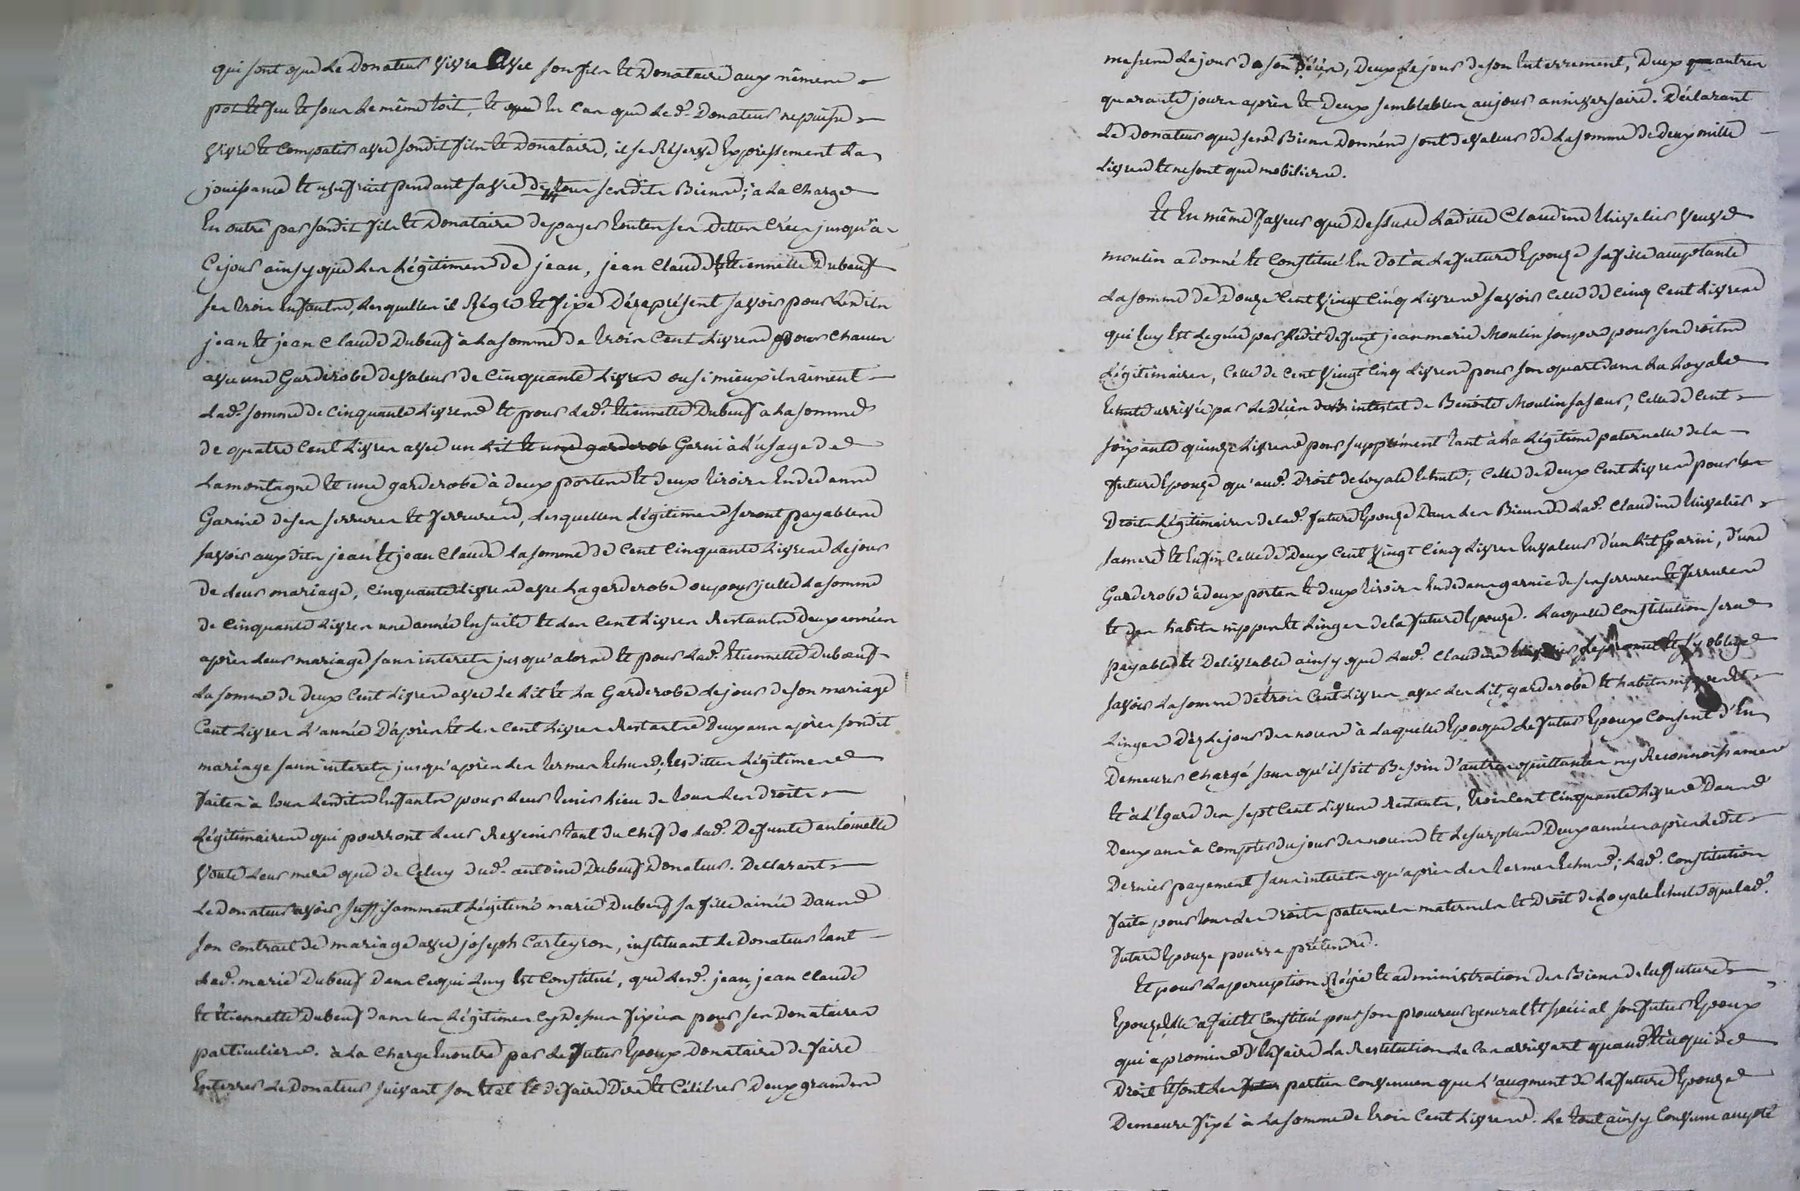 qui sont que le Donateur vivra avec son fils et Donataire aux mêmes
pot et feu et sous le même toit, et que en cas que led. Donateur ne puisse
vivre et compatir avec sondit fils et Donataire, il se Reserve Expressement la
jouissance et usufruit pendant sa vie de tous sesdits Biens; à la charge
En outre par sondit fils et Donataire de payer toutes ses dettes crées jusqu'à
ce jour ainsy que les légitimes de jean, jean Claude et Etiennette Dubeuf
ses trois Enfants, lesquelles il Régle et fixe Déz aprésent savoir pour lesdits
jean et jean Claude Dubeuf à la somme de trois Cent livres pour chacun
avec une Garderobe de valeur de Cinquante livres ou si mieux ils aiment
lad. somme de cinquante livres et pour lad. Etiennette Dubeuf à la somme
de quatre Cent livres avec un lit et une garderob Garni à l'usage de
la montagne et une garderobe à deux portes et deux tiroirs En dedans
Garnie de ses serrures et ferrures, lesquelles légitimes seront payables
savoir auxdits jean et jean Claude la somme de Cent Cinquante livres le jour
de leur mariage, cinquante livres avec la garderobe ou pour icelle la somme
de cinquante livres une année Ensuite et les Cent livres Restants Deux années
après leur mariage sans interets jusqu'alors et pour lad. Etiennette Dubeuf
la somme de deux Cent livres avec le lit et la Garderobe le jour de son mariage
Cent livres l'année D'après et les Cent livres Restantes Deux ans après sondit
mariage sans interets jusqu'après les termes Echus; lesdittes légitimes
faites à tous lesdits Enfants pour leur tenir lieu de tous les droits
légitimaires qui pourront leur Revenir tant du Chef de lad. Defunte antoinette
leur mere que de Celuy dud. antoine Dubeuf Donateur. Declarant
le Donateur avoir suffisamment légitimé marie Dubeuf sa fille ainée Dans
son contrait de mariage avec joseph Carteyron, instituant le Donateur tant
lad. marie Dubeuf dans ce qui luy est Constitué, que lesd. jean, jean Claude
et Etiennette Dubeuf dans les légitimes cy Dessus fixées pour ses Donataires
particuliers. à la charge En outre par le futur Epoux Donataire de faire
Enterrer le Donateur suivant son Etat et de faire Dire et Célébrer deux grandes
messes le jour de son décès, Deux le jour de son Enterrement, Deux autres
quarante jours après et deux semblables au jour anniversaire. Déclarant
le Donateur que ses Biens donnés sont de valeur de la somme de deux mille
livres et ne sont que mobiliers.
Et En même faveur que Dessus ladite Claudine veuve
moulin a donné et Constitué En Dot à la future Epouse sa fille acceptante
la somme de Douze Cent vingt cinq livres savoir Celle de cinq Cent livres
qui luy est leguée par ledit Defunt jean marie Moulin son pere pour ses droits
légitimaires, Celle de Cent vingt Cinq livres pour son quart dans la loyale
Echute arrivée par le décès intestat de Benoite Moulin sa sœur, Celle de Cent
soixante quinze livres pour supplement tant à la légitime paternelle de la
future Epouse qu'aud. Droit de loyale Echute, Celle de Deux Cent livres pour les
Droits légitimaires de lad. future Epouse Dans les Biens de lad. Claudine
sa mere et Enfin Celle de Deux Cent vingt Cinq livres En valeur d'un lit Garni, D'une
Garderobe à deux portes et deux tiroirs En dedans garnie de ses serrures et ferrures
et des habits nippes et linges de la future Epouse. Laquelle Constitution sera
payable et Delivrable ainsy que lad. Claudine le promet et s'y oblige
savoir la somme de trois Cent livres avec les lit, garderobe et habits nippes et
linges Dèz le jour des noces à laquelle Epoque le futur Epoux Consent d'En
Demeurer Chargé sans qu'il soit Besoin d'autres quittances ny Reconnoissances
et à l'égard des sept Cent livres restants, trois Cent Cinquante livres Dans
Deux ans à Compter du jour des noces et le surplus Deux années après ledit
Dernier payement sans interets qu'après les termes Echus; lad. Constitution
faite pour tous les Droits paternels maternels et Droit de loyale Echute que lad.
future Epouse pourra prétendre.
Et pour la perception Régie et administration des Biens de la future
Epouse Elle a fait et Constitué pour son procureur general et spécial son futur Epoux
qui a promis d'En faire la Restitution le Cas arrivant quand et à qui de
Droit et sont les parties Convenues que l'augment de la future Epouse
Demeure fixé à la somme de trois Cent livres. le tout ainsy Convenu accepté